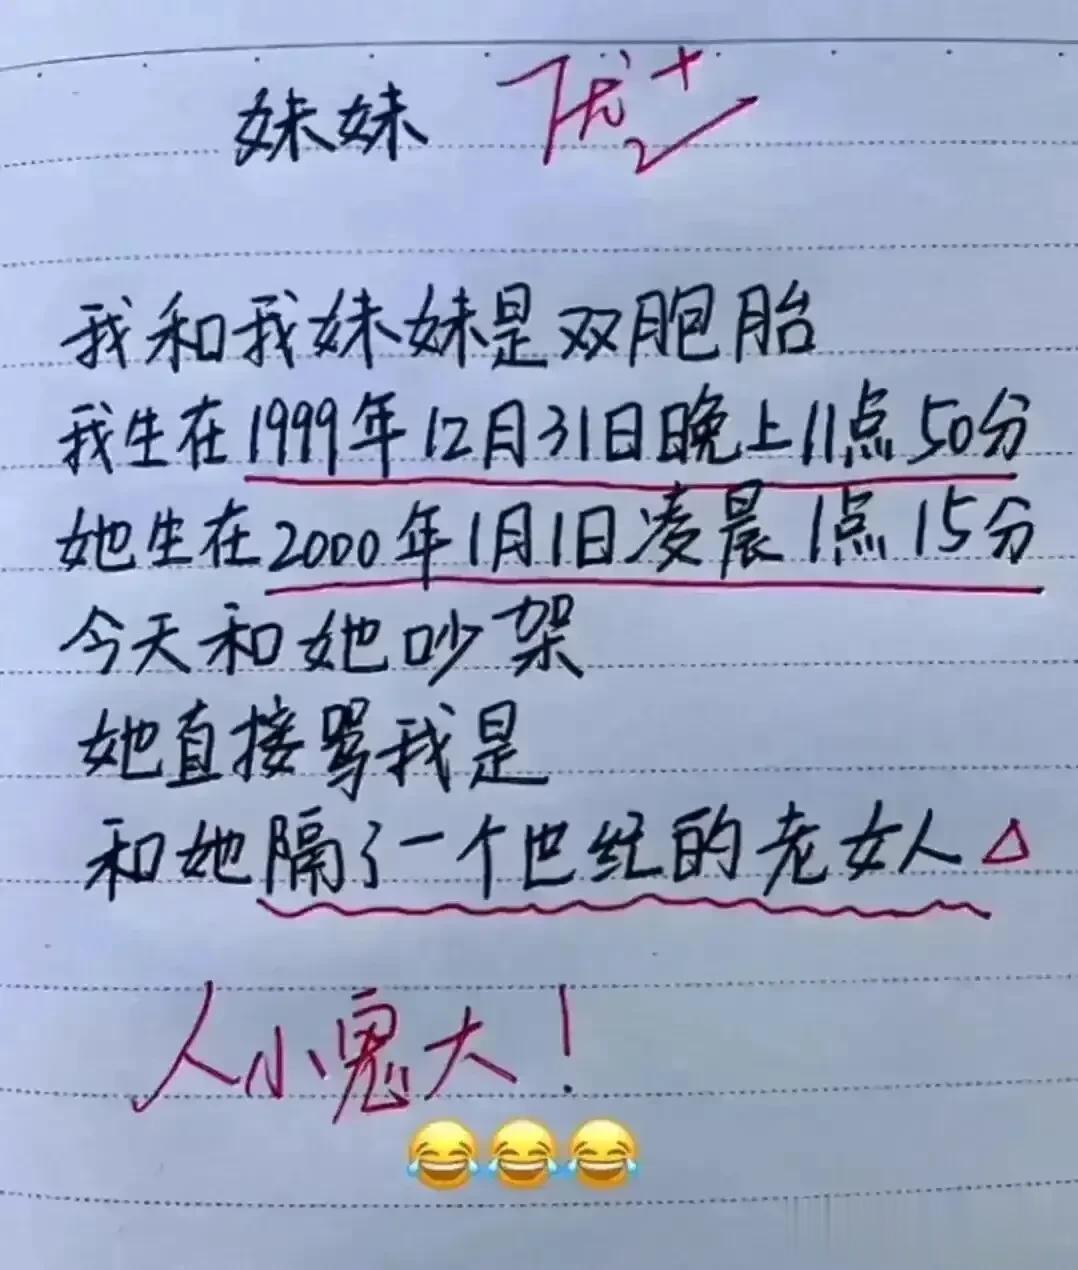 妹妹 优+
我和我妹妹是双胞胎
我生在1999年12月31日晚上11点50分
她生在2000年1月1日凌晨1点15分
今天和她吵架
她直接骂我是
和她隔了一个世纪的老女人
人小鬼大!